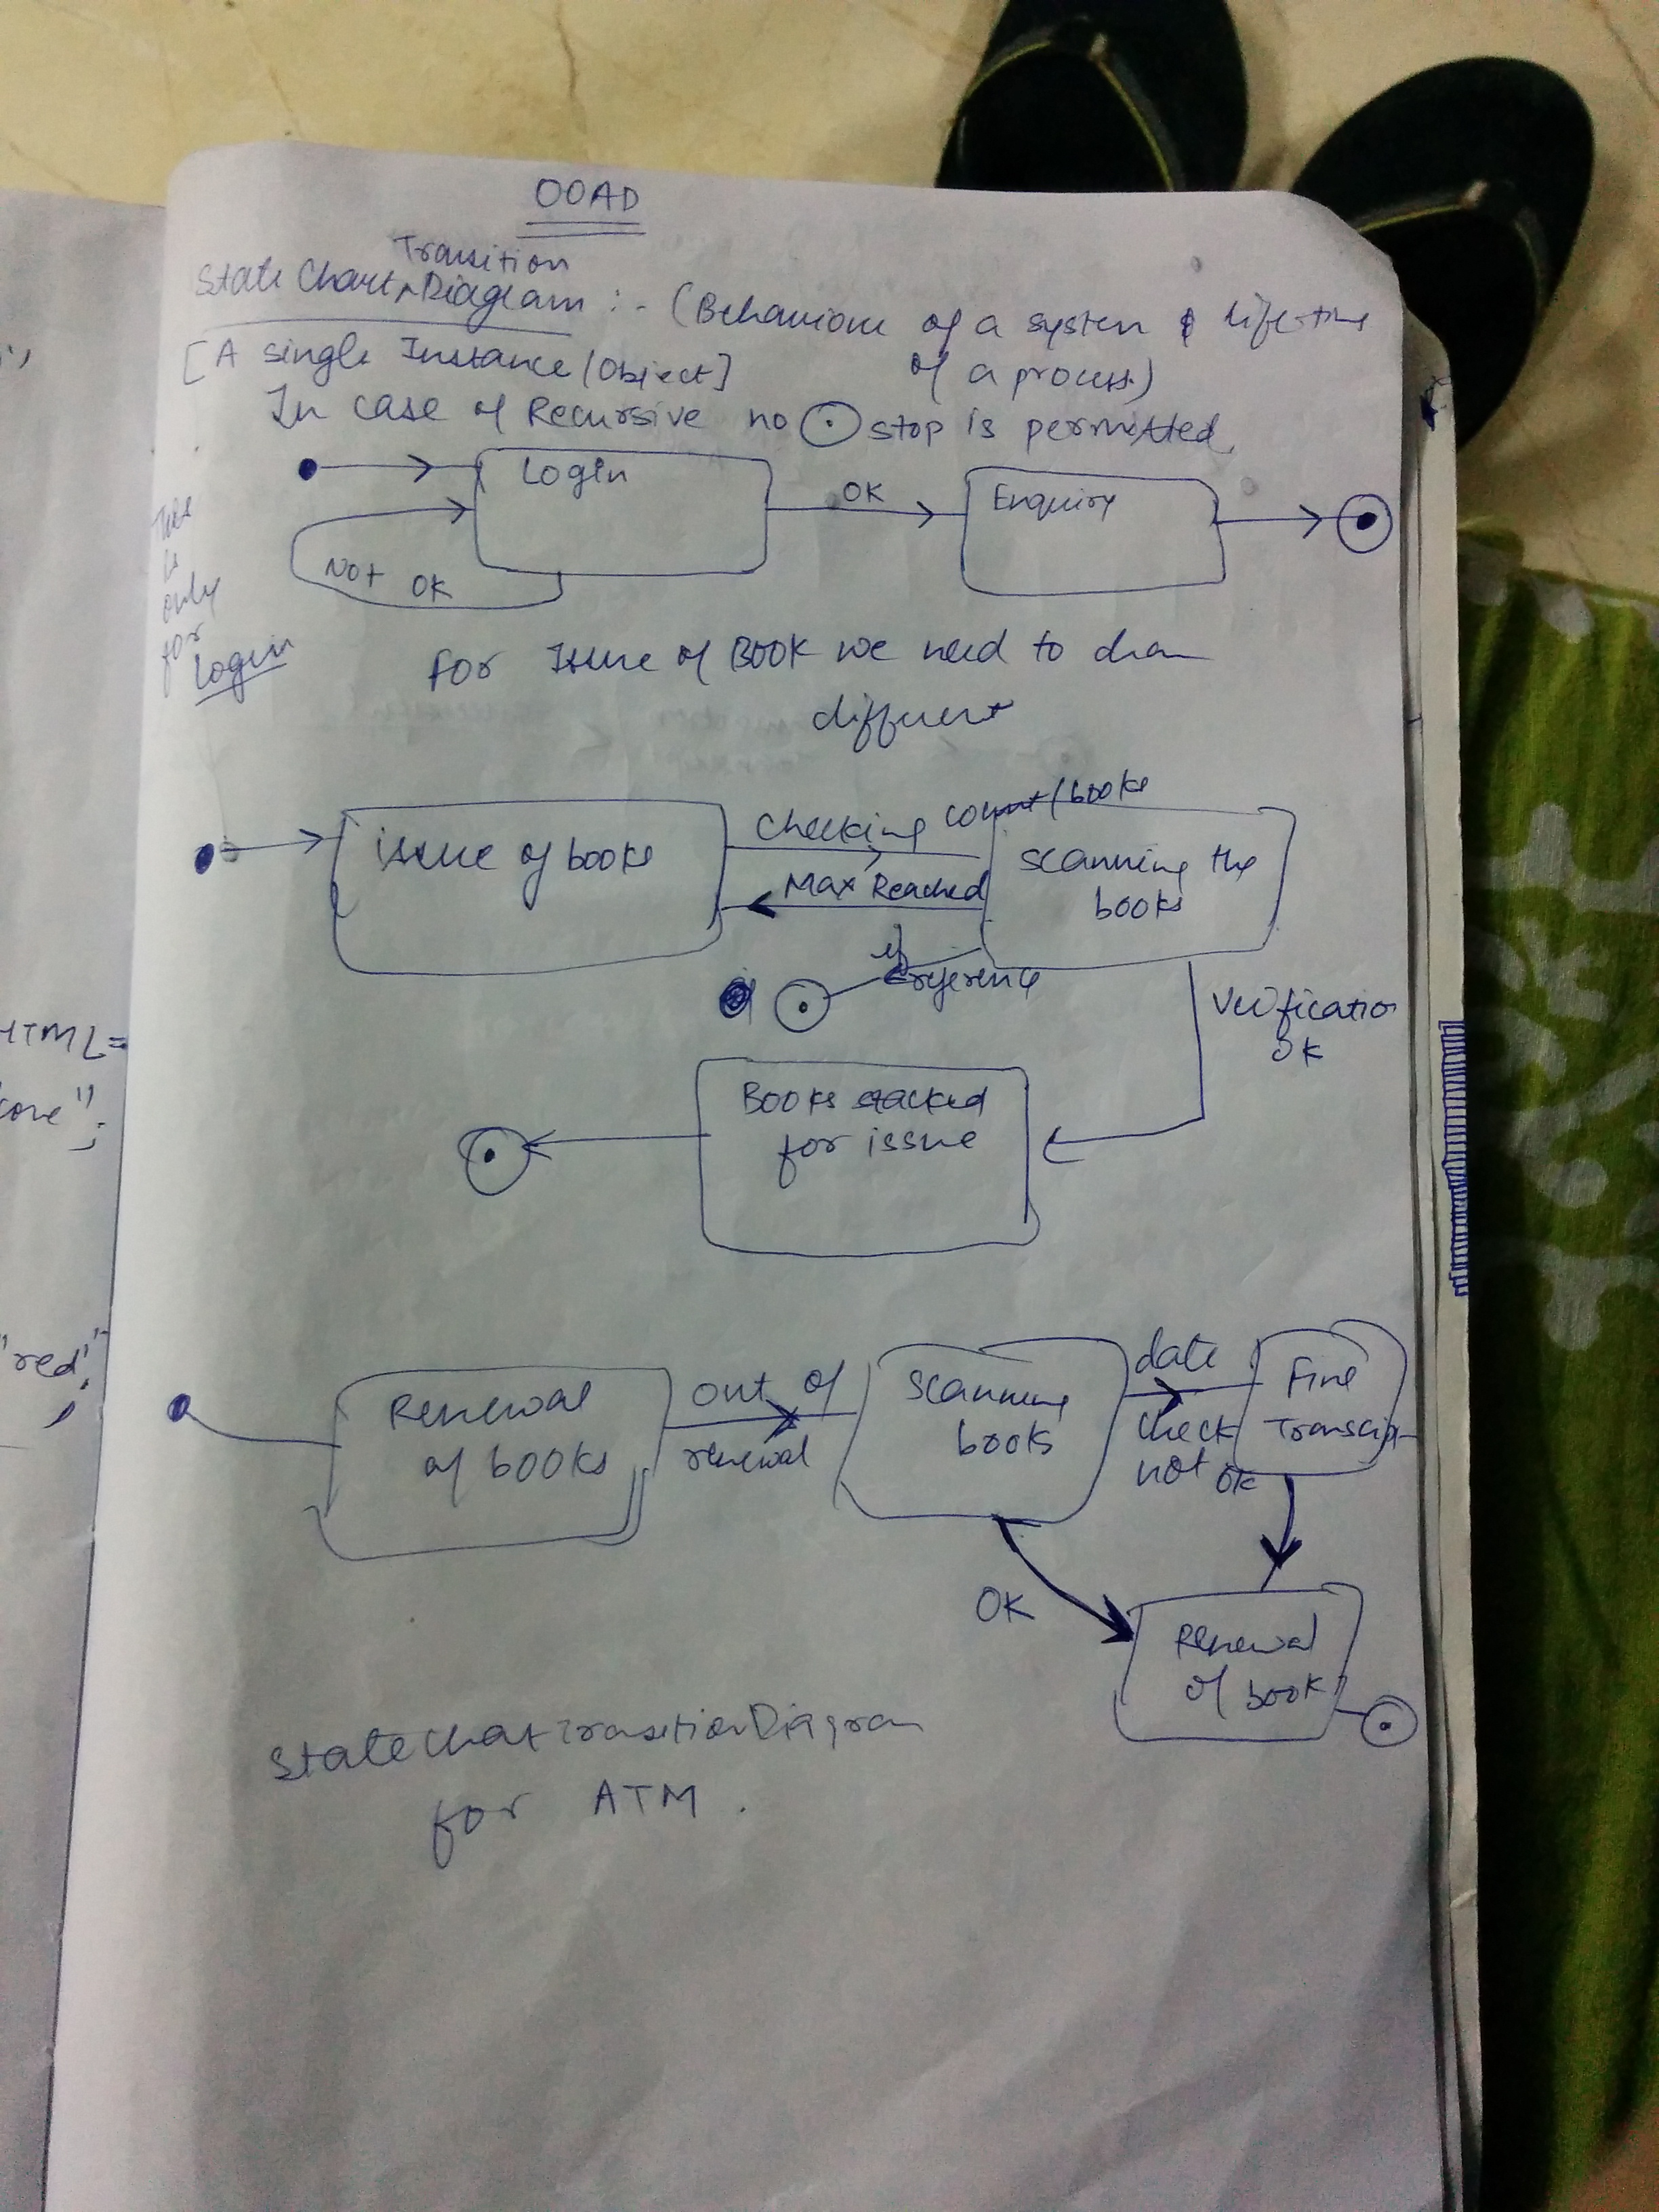 OOAD
Transition
State Chart Diagram :- (Behaviour of a system & life time
[A single Instance/Object] of a process)
In case of Recursive no stop is permitted.
Login
OK
Enquiry
Not OK
is
only
for
Login
For Issue of Book we need to draw
different
issue of books
Checking count/books
Max Reached
scanning the
books
if
reference
Verification
OK
Books stacked
for issue
Renewal
of books
out of
renewal
scanning
books
date
check
not ok
Fine
OK
Renewal
of book
State Chat Transition Diagram
for ATM.
HTML=
";
"red"
;